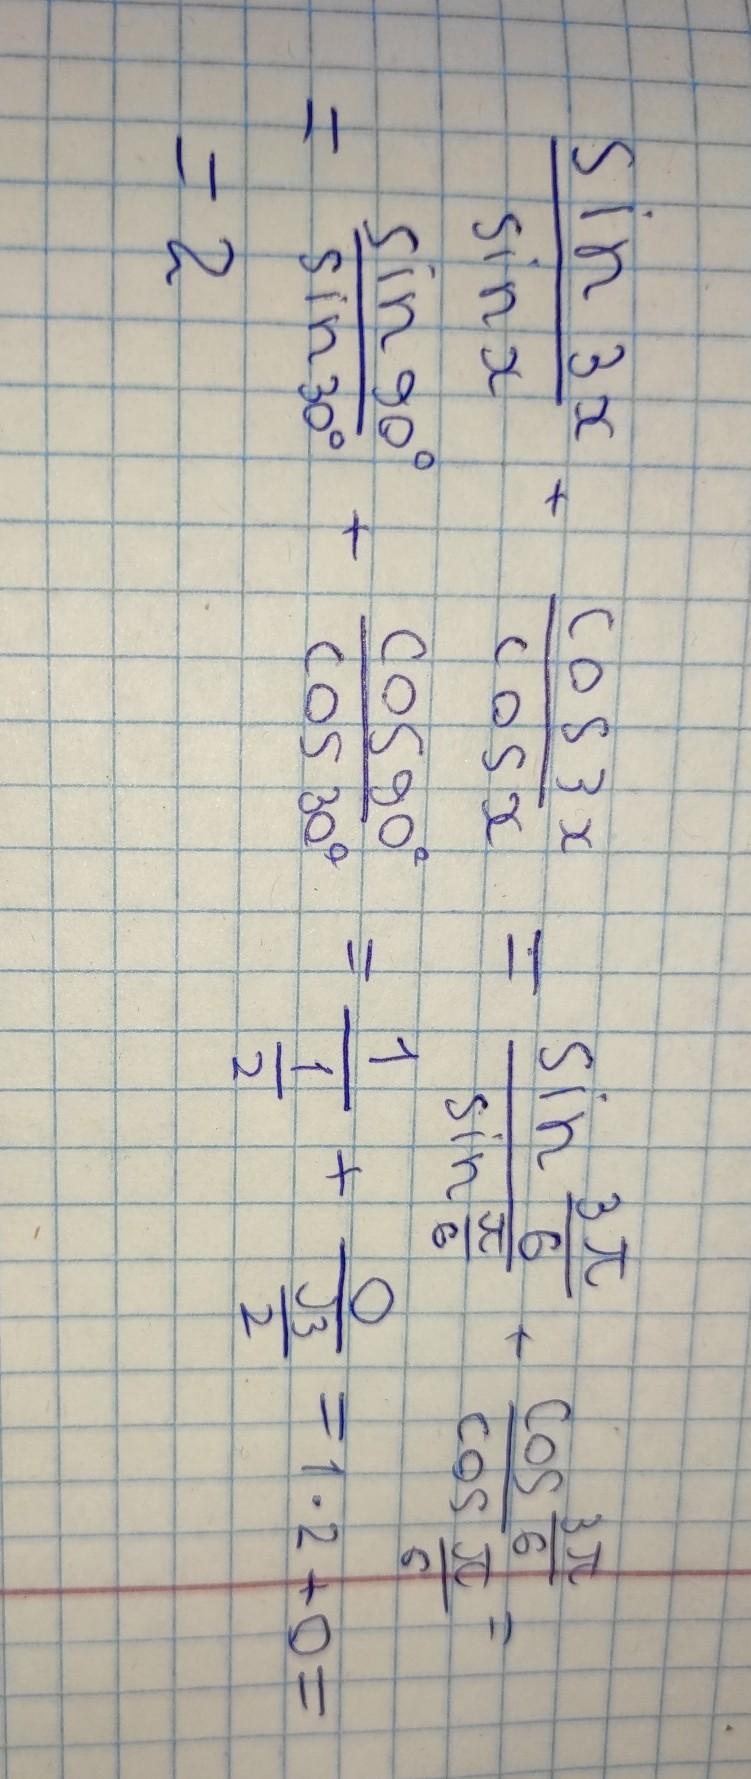 sin 3x / sin x + cos 3x / cos x = sin 3π/6 / sin π/6 + cos 3π/6 / cos π/6 =
= sin 90° / sin 30° + cos 90° / cos 30° = 1 / 1/2 + 0 / √3/2 = 1 · 2 + 0 =
= 2